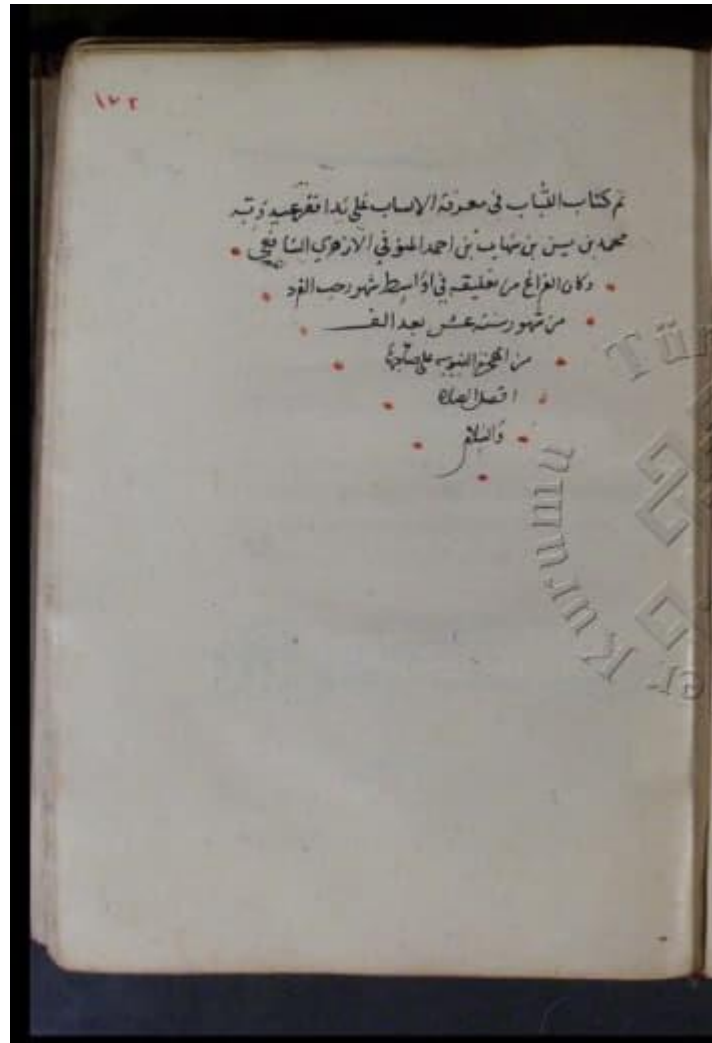 ١٧٢
تم كتاب اللباب في معرفة الانساب على يد افقر عبيد ربه
محمد بن يس بن شهاب بن احمد المنوفي الازهري الشافعي
وكان الفراغ من تعليقه في اواسط شهر رجب الفرد
من شهور سنة عشر بعد الف
من الهجرة النبوية على صاحبها
افضل الصلاة
والسلام